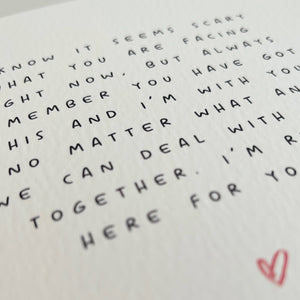 KNOW IT SEEMS SCARY
WHAT YOU ARE FACING
GHT NOW. BUT ALWAYS
MEMBER YOU HAVE GOT
HIS AND I'M WITH YOU
NO MATTER WHAT AN
WE CAN DEAL WITH
TOGETHER. I'M R
HERE FOR YO